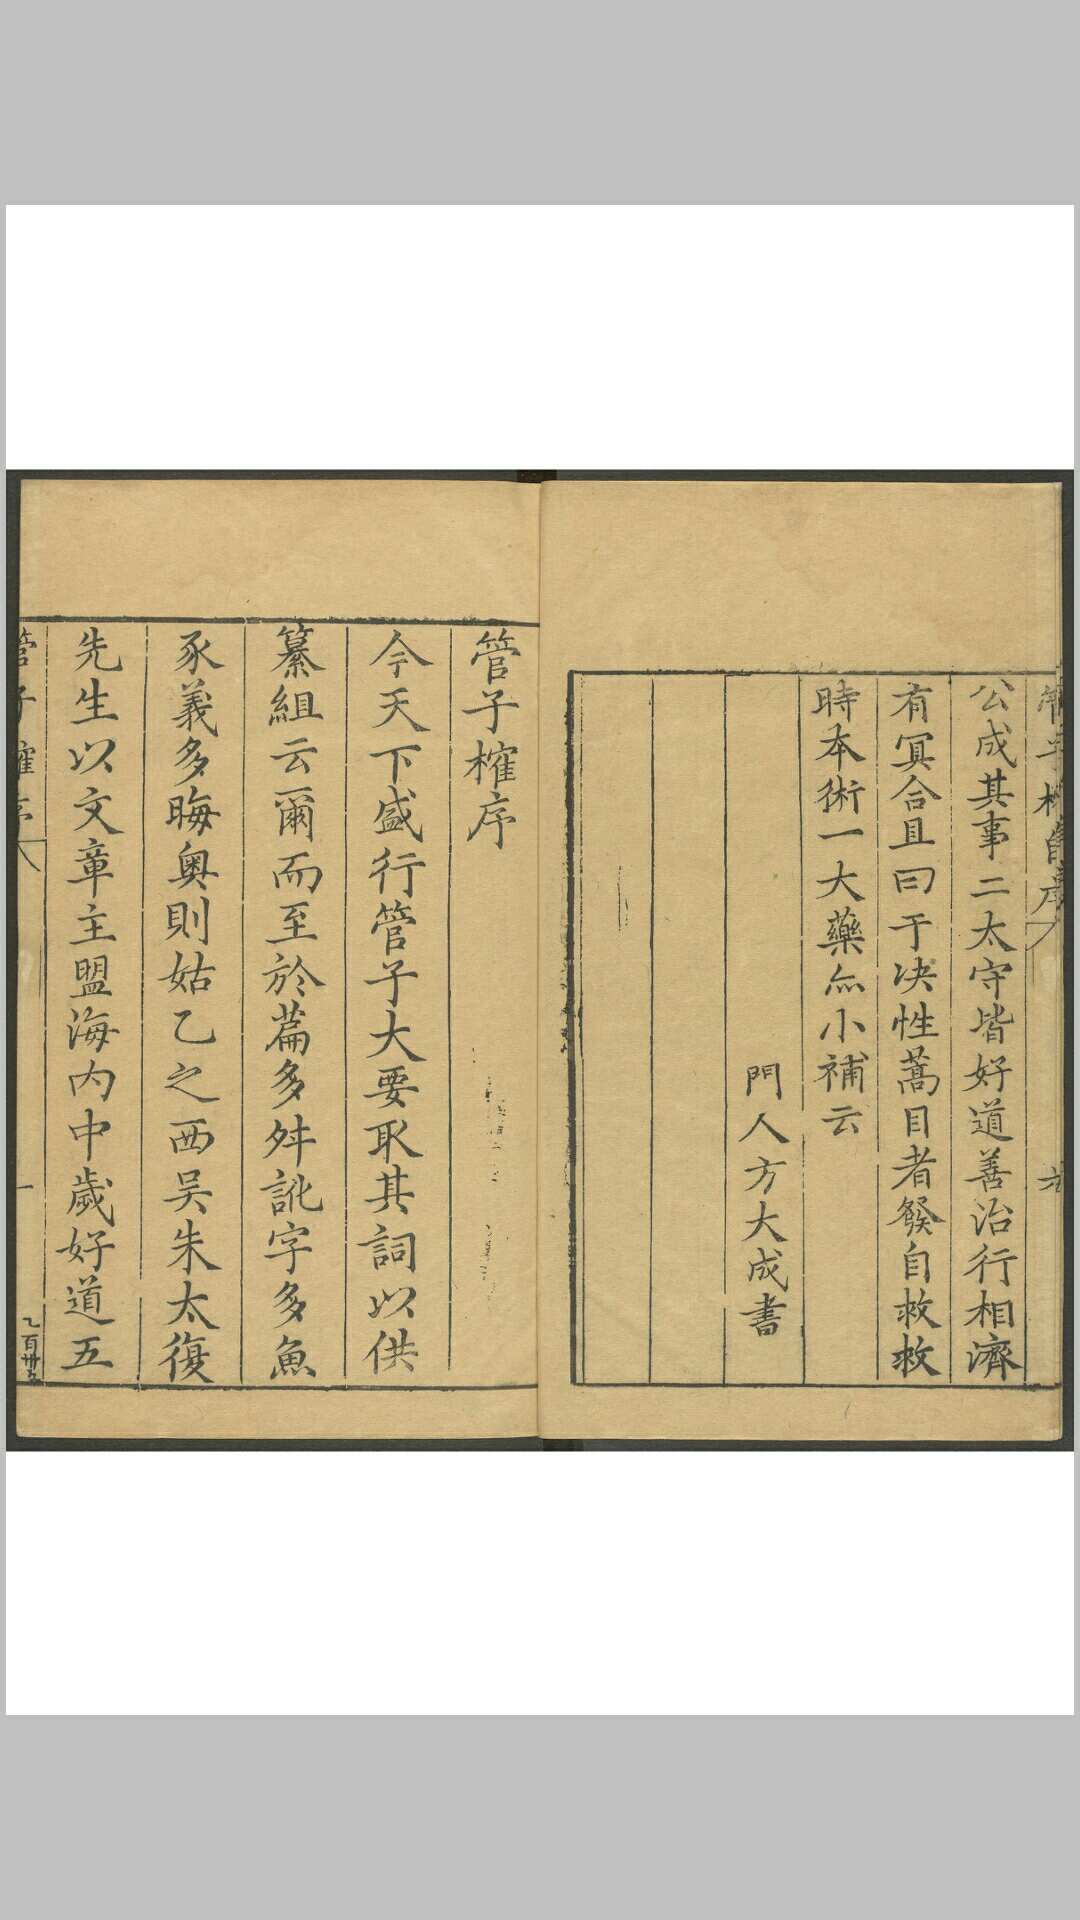 公成其事二太守皆好道善治行相濟
有冥合且曰于决性蒿目者發自救救
時本術一大藥亦小補云
門人方大成書
管子榷序
今天下盛行管子大要取其詞以供
纂組云爾而至於篇多舛訛字多魚
豕義多晦奥則姑乙之西吴朱太復
先生以文章主盟海内中歲好道五
管子榷序
一